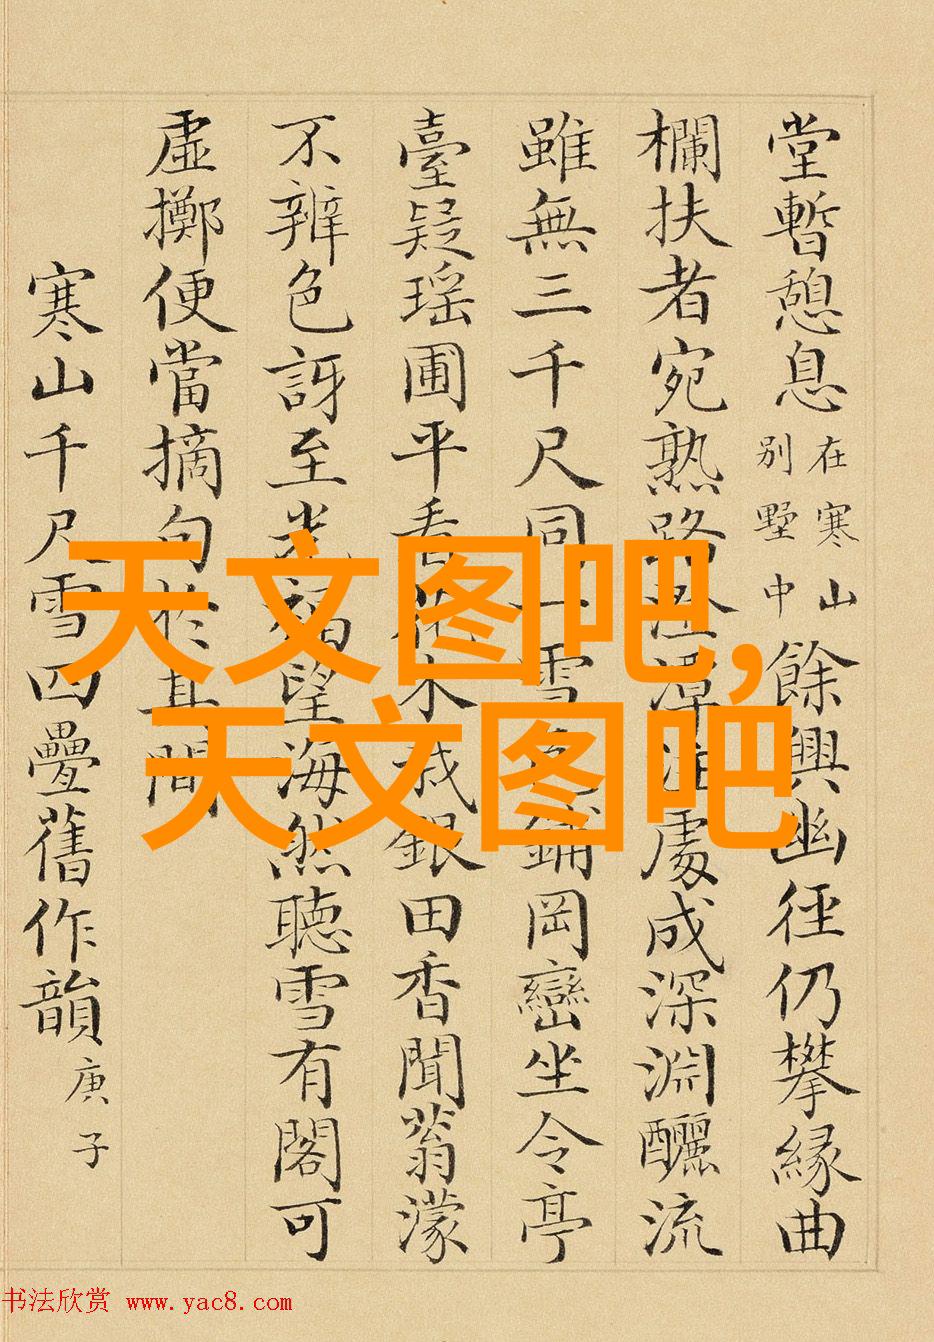 堂暫憩息在寒山別墅中餘興幽徑仍攀緣曲
欄扶者宛熟路潭注處成深淵釃流
雖無三千尺同一雪色鋪岡巒坐令亭
臺疑瑤圃平看花木栽銀田香聞蓊濛
不辨色訝至光福望海然聽雪有閣可
虛擲便當摘句於其間
寒山千尺雪四疊舊作韻庚子
天文图吧,
天文图吧
书法欣赏 www.yac8.com